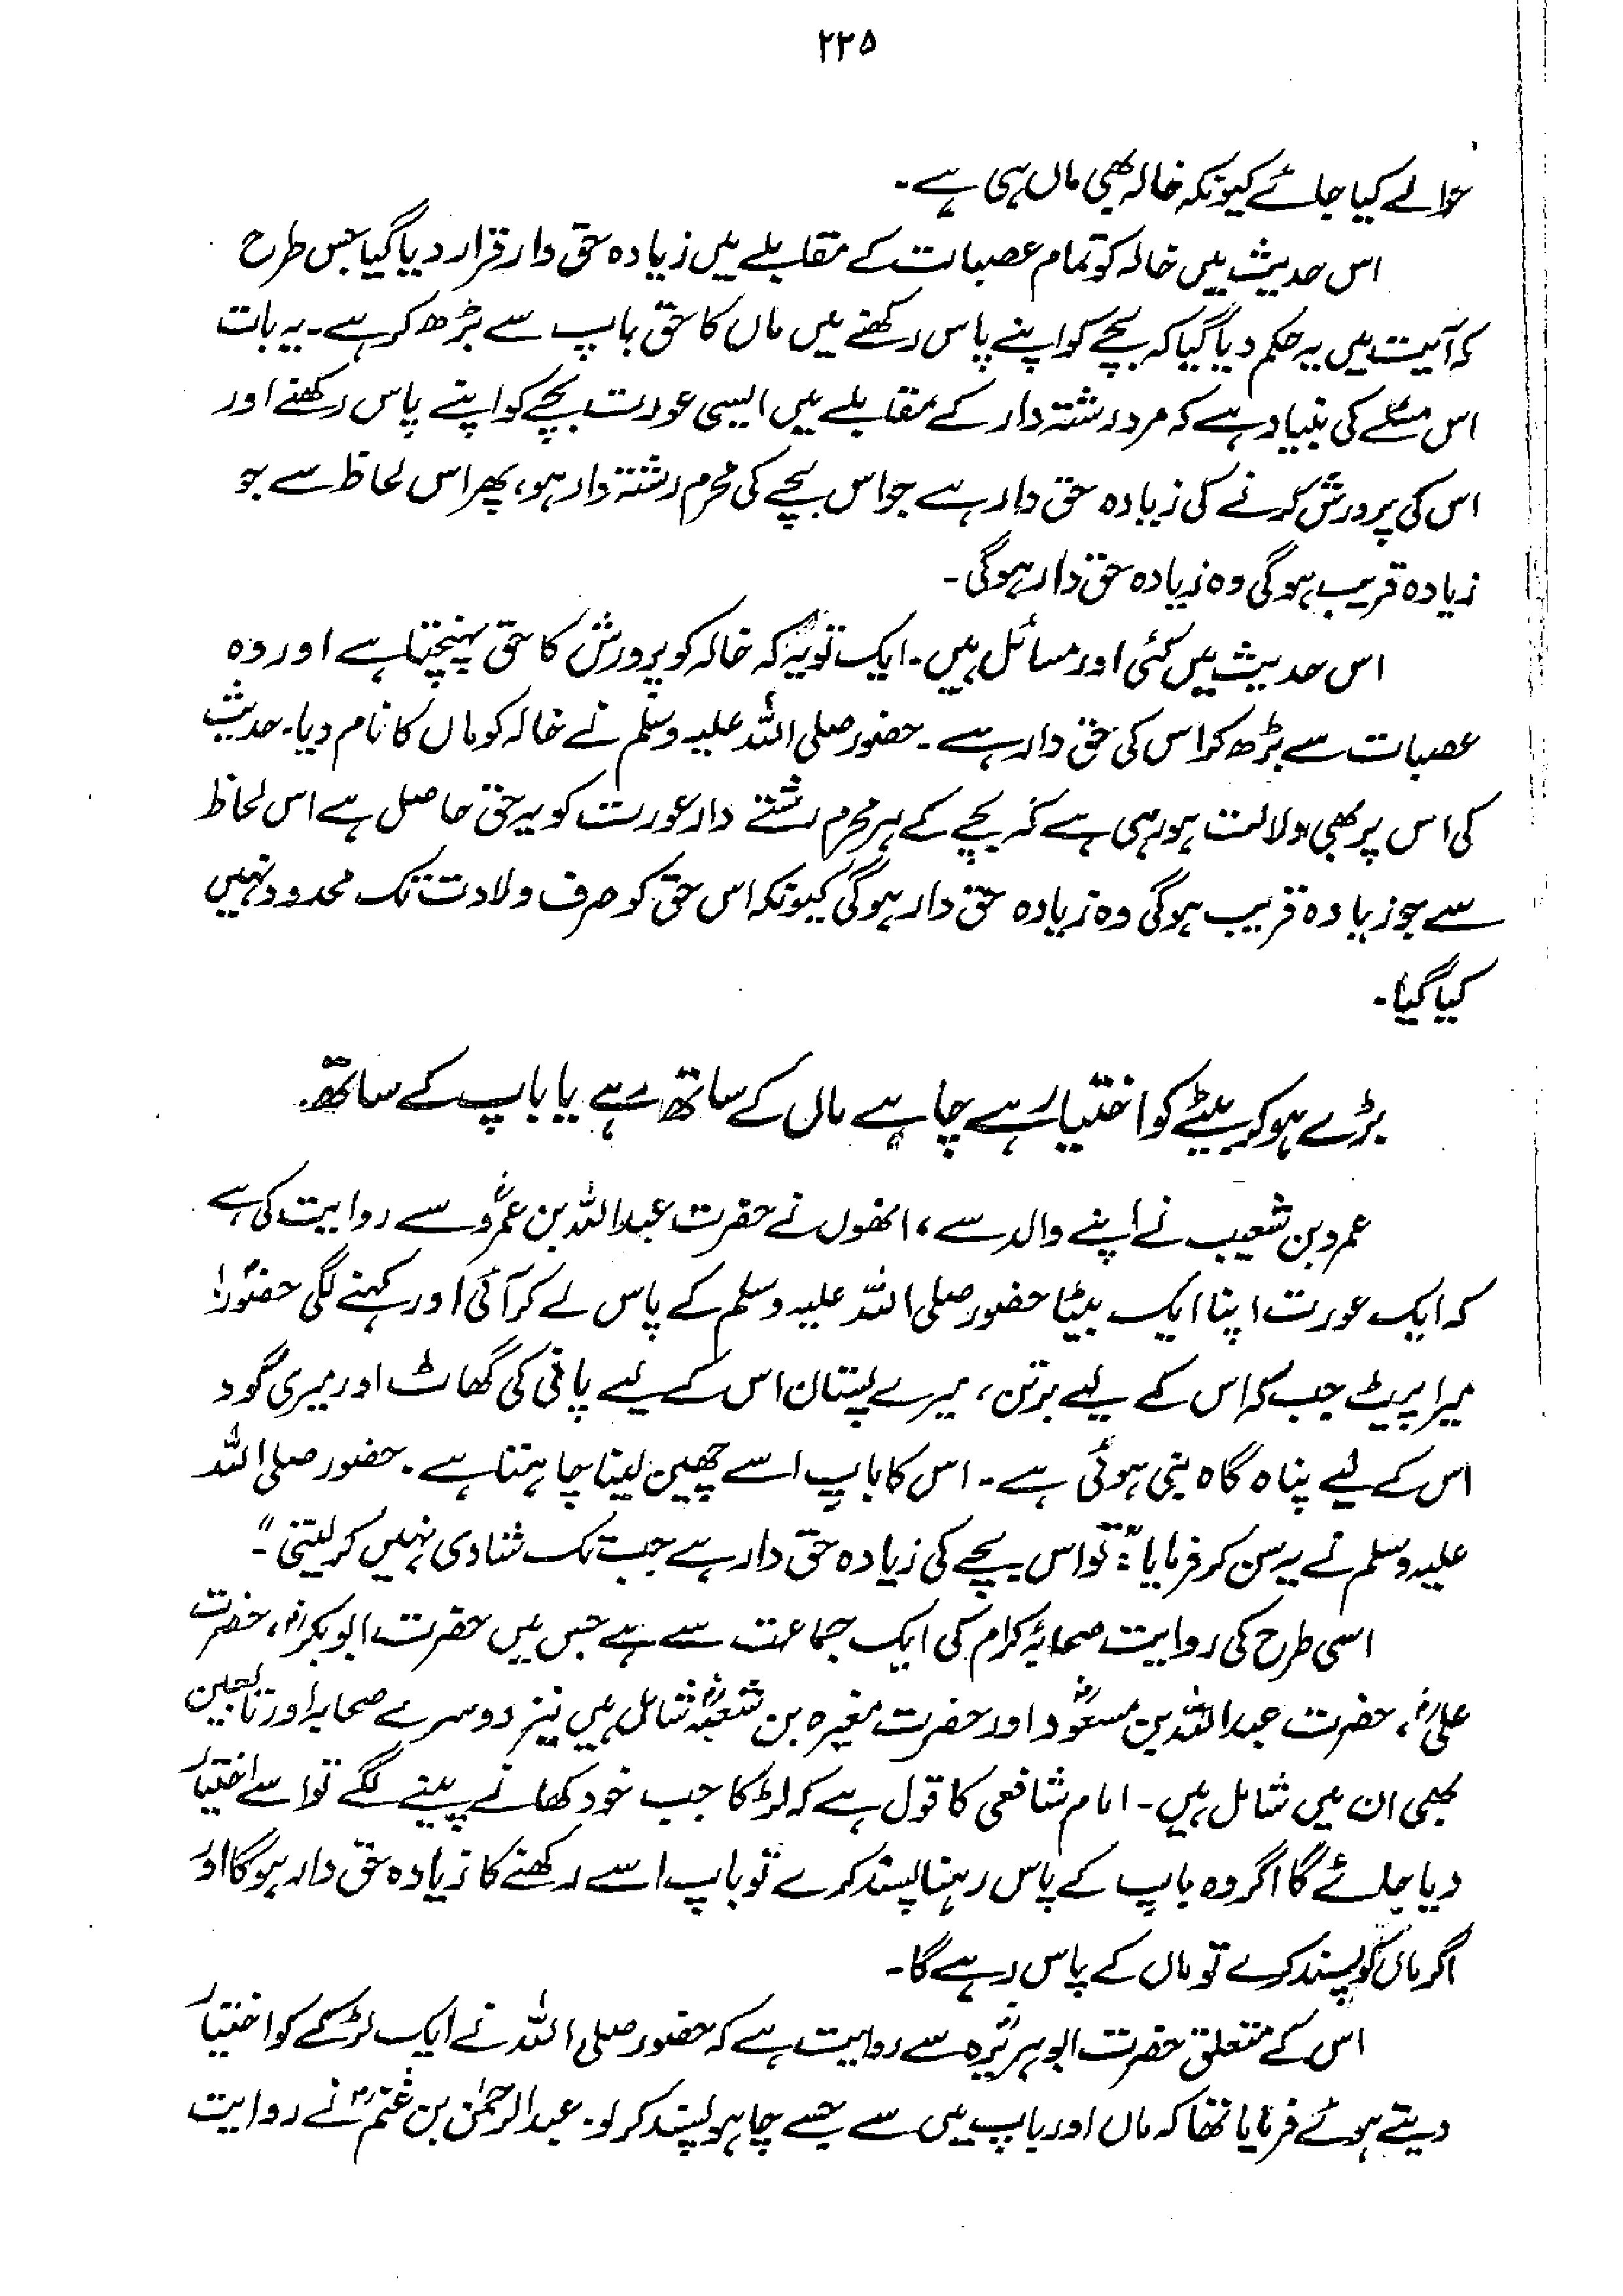 ۲۲۵
حوالے کیا جائے کیونکہ خالہ بھی ماں ہی ہے۔
اس حدیث میں خالہ کو تمام عصبات کے مقابلے میں زیادہ حق دار قرار دیا گیا جس طرح
کہ آیت میں یہ حکم دیا گیا کہ بچے کو اپنے پاس رکھنے میں ماں کا حق باپ سے بڑھ کر ہے۔ یہ بات
اس مسئلے کی بنیاد ہے کہ مرد رشتہ دار کے مقابلے میں ایسی عورت بچے کو اپنے پاس رکھنے اور
اس کی پرورش کرنے کی زیادہ حق دار ہے جو اس بچے کی محرم رشتہ دار ہو، پھر اس لحاظ سے جو
زیادہ قریب ہوگی وہ زیادہ حق دار ہوگی۔
اس حدیث میں کئی اور مسائل ہیں۔ ایک تو یہ کہ خالہ کو پرورش کا حق پہنچتا ہے اور وہ
عصبات سے بڑھ کر اس کی حق دار ہے۔ حضور صلی اللہ علیہ وسلم نے خالہ کو ماں کا نام دیا۔ حدیث
کی اس پر بھی دلالت ہو رہی ہے کہ بچے کے ہر محرم رشتے دار عورت کو یہ حق حاصل ہے اس لحاظ
سے جو زیادہ قریب ہوگی وہ زیادہ حق دار ہوگی کیونکہ اس حق کو صرف ولادت تک محدود نہیں
کیا گیا۔
بڑے ہو کر بیٹے کو اختیار ہے چاہے ماں کے ساتھ رہے یا باپ کے ساتھ۔
عمرو بن شعیب نے اپنے والد سے، انھوں نے حضرت عبداللہ بن عمروؓ سے روایت کی ہے
کہ ایک عورت اپنا ایک بیٹا حضور صلی اللہ علیہ وسلم کے پاس لے کر آئی اور کہنے لگی حضورؐ!
میرا پیٹ جب کہ اس کے لیے برتن، میرے پستان اس کے لیے پانی کی گھاٹ اور میری گود
اس کے لیے پناہ گاہ بنی ہوئی ہے۔ اس کا باپ اسے چھین لینا چاہتا ہے۔ حضور صلی اللہ
علیہ وسلم نے یہ سن کر فرمایا: "تو اس بچے کی زیادہ حق دار ہے جب تک شادی نہیں کر لیتی"۔
اسی طرح کی روایت صحابۂ کرام کی ایک جماعت سے ہے جس میں حضرت ابوبکرؓ، حضرت
علیؓ، حضرت عبداللہ بن مسعودؓ اور حضرت مغیرہ بن شعبہؓ شامل ہیں نیز دوسرے صحابہ اور تابعین
بھی ان میں شامل ہیں۔ امام شافعی کا قول ہے کہ لڑکا جب خود کھانے پینے لگے تو اسے اختیار
دیا جائے گا اگر وہ باپ کے پاس رہنا پسند کرے تو باپ اسے رکھنے کا زیادہ حق دار ہوگا اور
اگر ماں کو پسند کرے تو ماں کے پاس رہے گا۔
اس کے متعلق حضرت ابوہریرہؓ سے روایت ہے کہ حضور صلی اللہ نے ایک لڑکے کو اختیار
دیتے ہوئے فرمایا تھا کہ ماں اور باپ میں سے جسے چاہو پسند کر لو۔ عبدالرحمٰن بن غنمؓ نے روایت